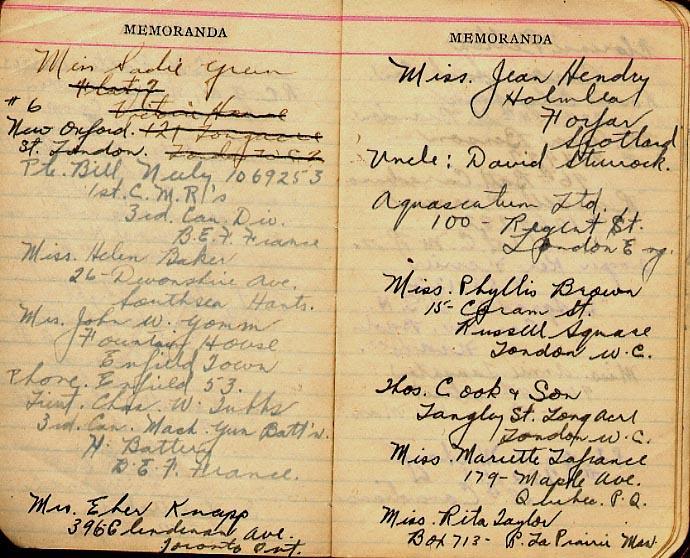 MEMORANDA
Miss Sadie Green
Flat 7
Victoria House
# 6
New Oxford. 121
St. London.
Pte. Bill Neily 1069253
1st. C.M.R's
3rd. Can. Div.
B.E.F. France
Miss. Helen Baker
26 - Devonshire Ave.
Southsea Hants.
Mrs. John W. Yomm
Fountain House
Enfield Town
Phone. Enfield 53.
Lieut. Chas. W. Tubbs
3rd. Can. Mach. Gun Batt'n.
H. Battery
B.E.F. France.
Mrs. Eber Knapp
396 Glendenan Ave.
Toronto Ont.
MEMORANDA
Miss. Jean Hendry
Holmlea
Forfar
Scotland
Uncle: David Sturrock.
Aquascutum Ltd.
100 - Regent St.
London Eng.
Miss. Phyllis Brown
15 - Coram St.
Russell Square
London W.C.
Thos. Cook & Son
Langley St. Long Acre
London W.C.
Miss. Mariette Lafrance
179 - Maple Ave.
Quebec. P.Q.
Miss. Rita Taylor
Box 713 - P. La Prairie Man.